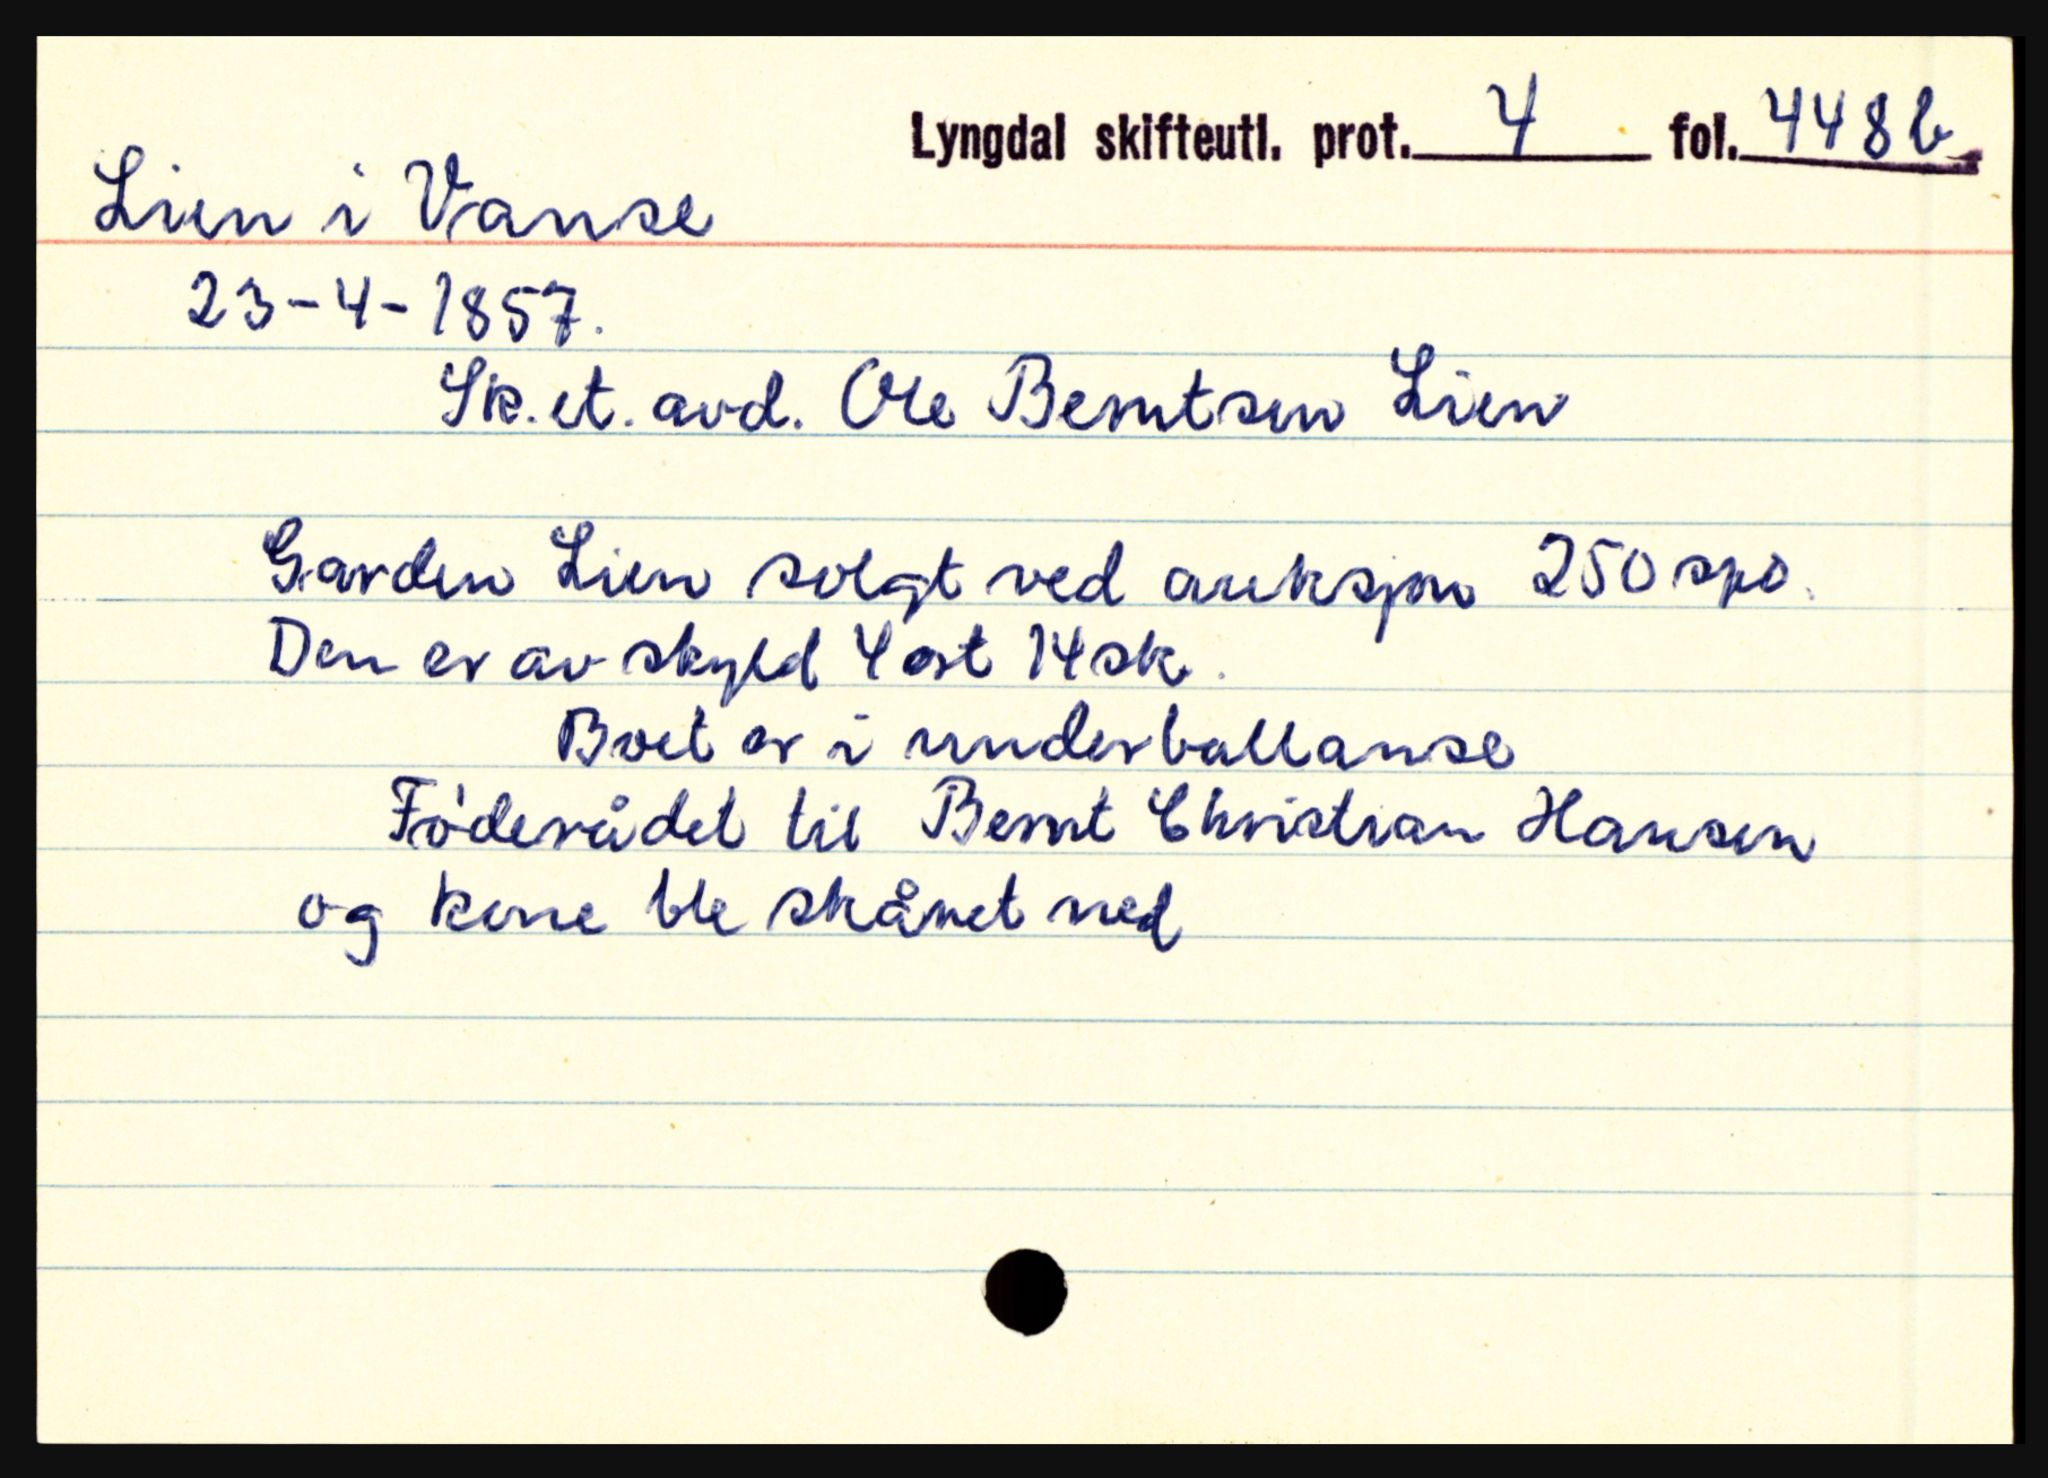 Lyngdal skifteutl. prot. 4 fol. 448b
Lien i Vanse
23-4-1857.
Sk. et. avd. Ole Berntsen Lien
Garden Lien solgt ved auksjon 250 spd.
Den er av skyld 4 ort 14 sk.
Boet er i underballanse
Føderådet til Bernt Christian Hansen
og kone ble skåret ned